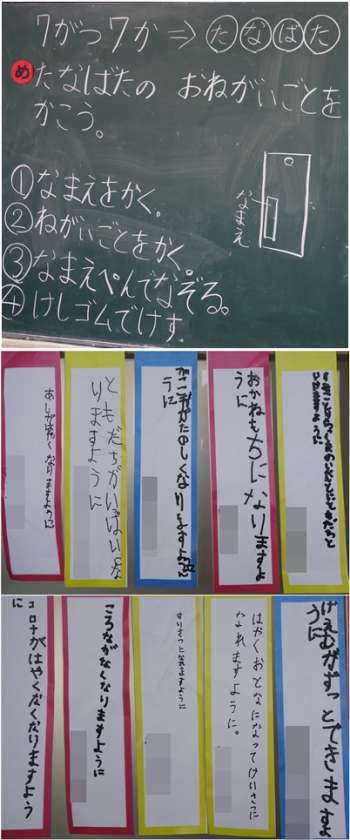 7がつ7か ⇒ たなばた
め たなばたの おねがいごとを
かこう。
①なまえをかく。
②ねがいごとをかく
③なまえぺんでなぞる。
④けしゴムでけす。
なまえ
いけますように
おかねもちになりますよ
うに
たのしくなりますよ
うに
ともだちがいっぱいにな
りますように
あしがはやくなりますように
けえむがずっとできますよ
うに
はやくおとなになってけいさつに
なれますように。
なれますように
ころながなくなりますように
コロナがはやくなくなりますよう
に